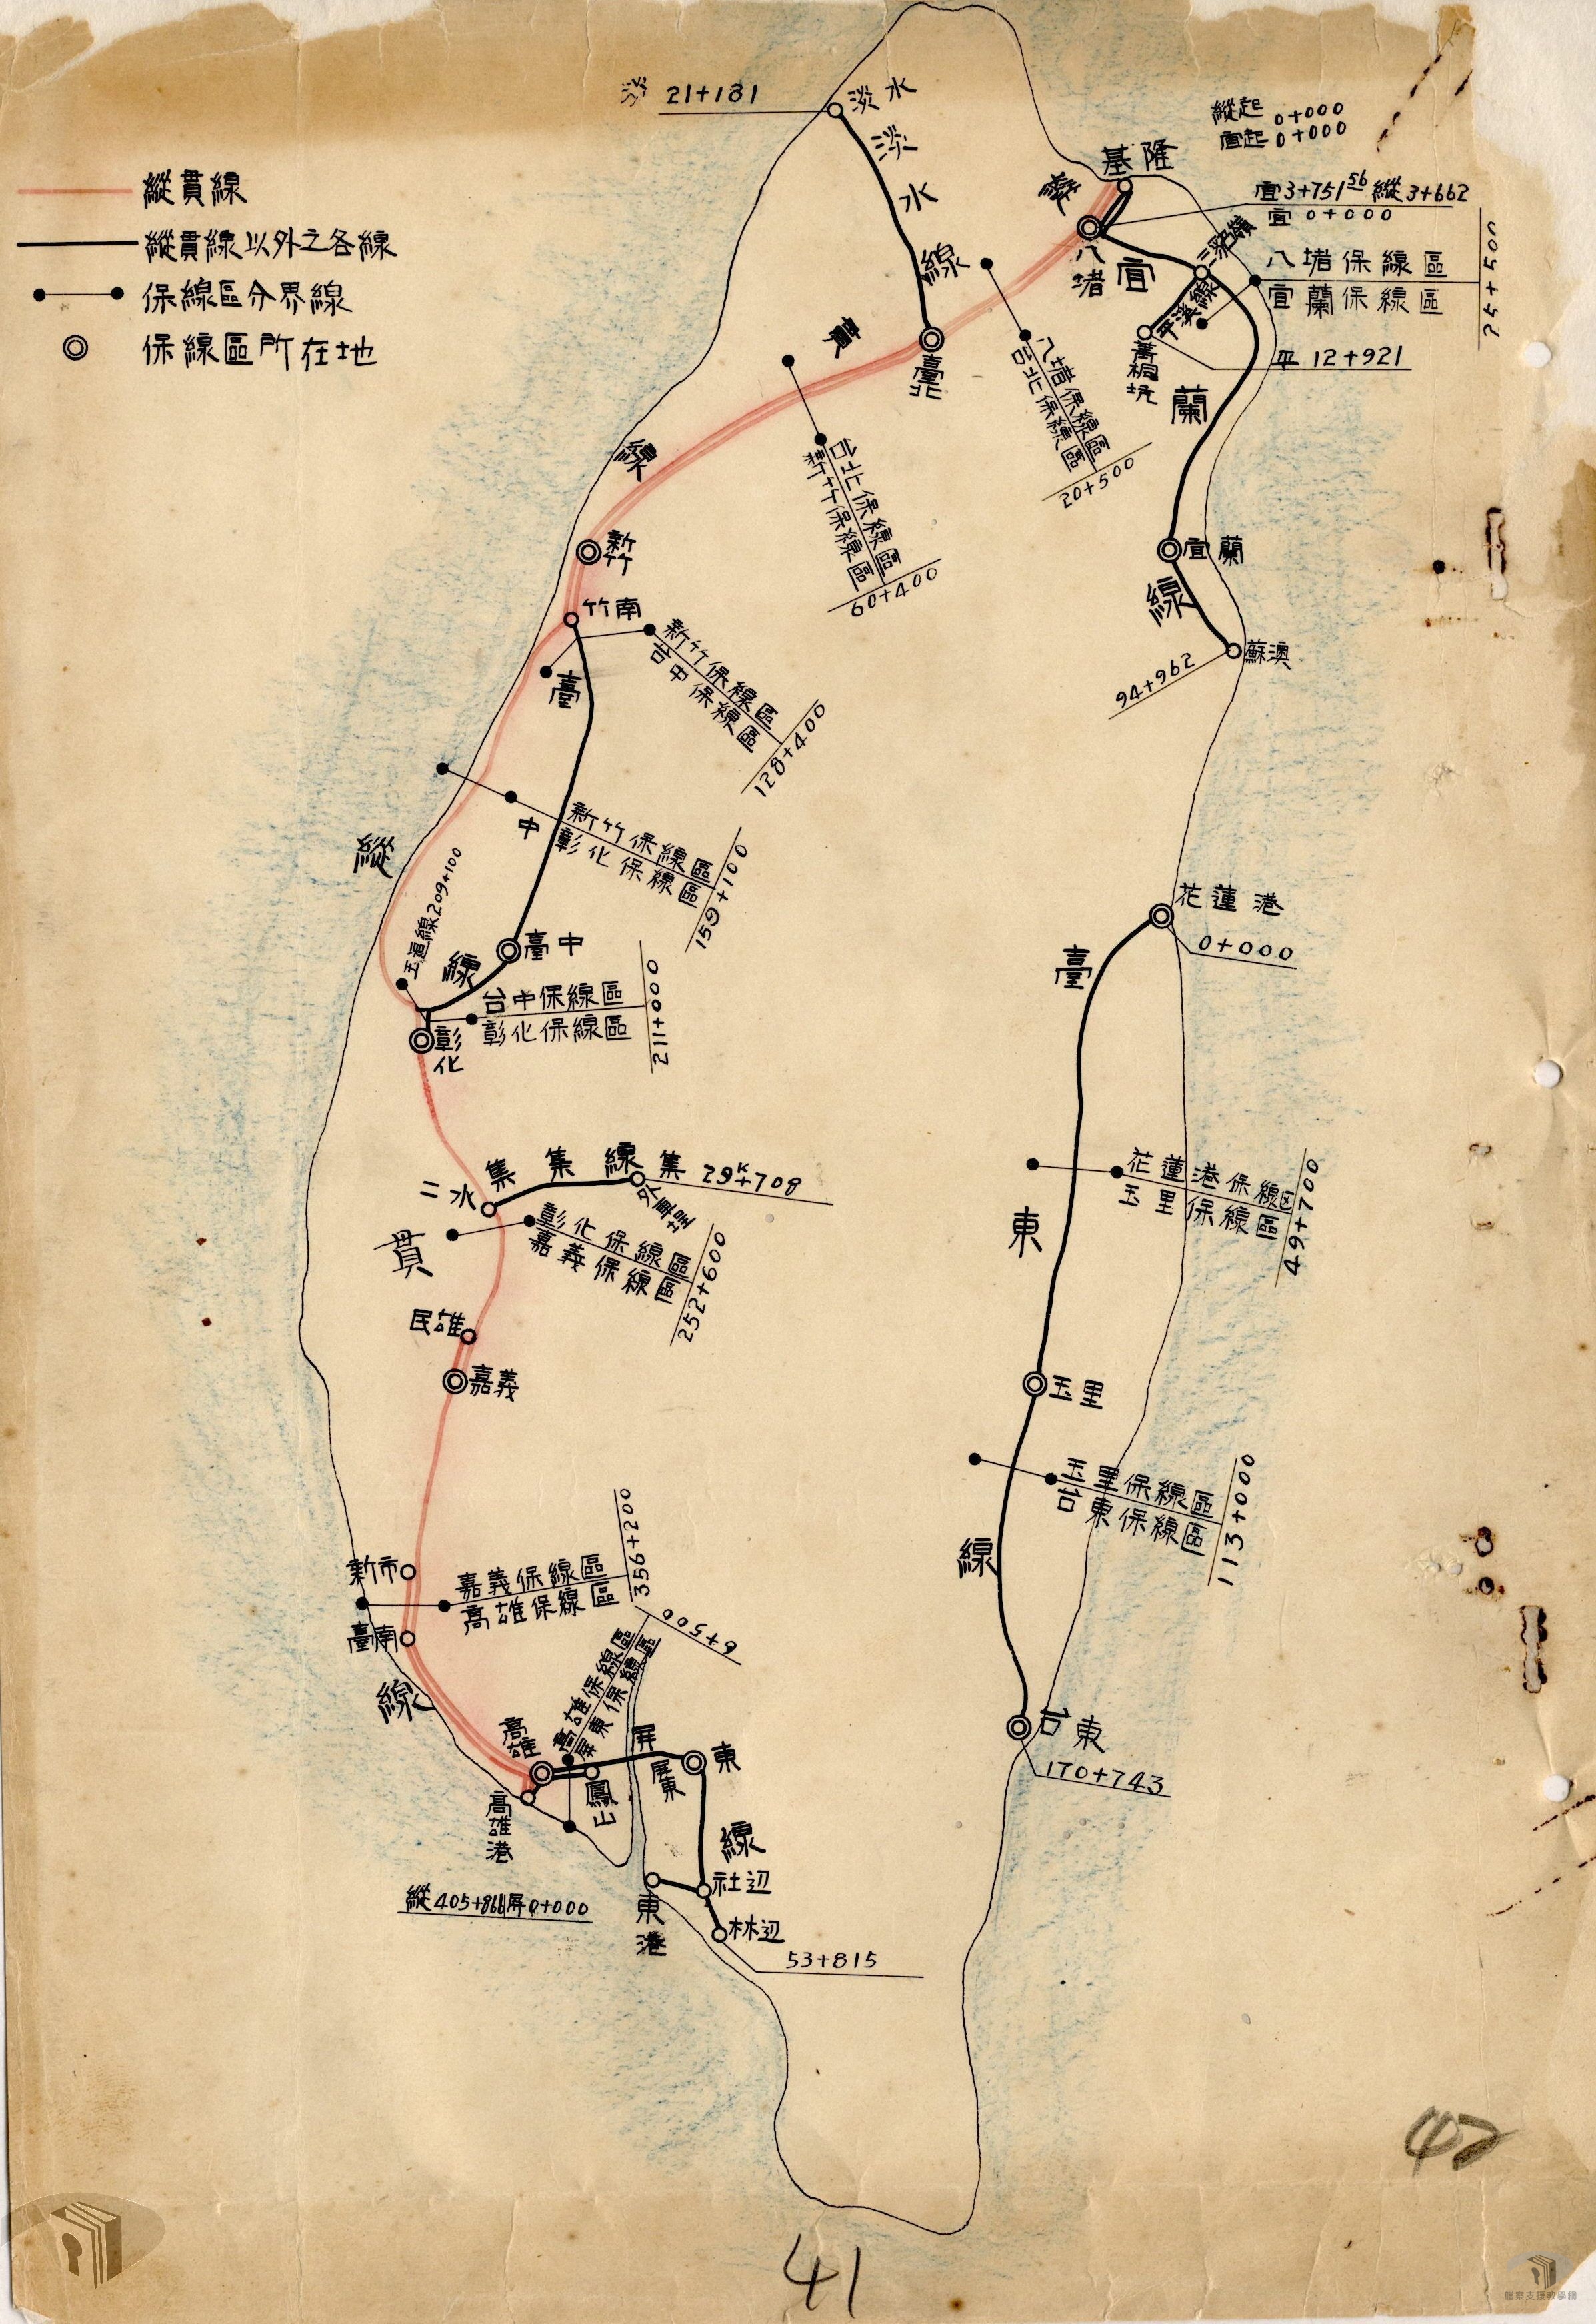 縱貫線
縱貫線以外之各線
保線區分界線
保線區所在地
淡 21+181
淡水
淡水線
縱起 0+000
宜起 0+000
基隆
宜3+751⁵⁶ 縱3+662
宜 0+000
八堵
八堵保線區
宜蘭保線區
25+500
三貂嶺
平溪線
菁桐坑
平 12+921
宜蘭線
縱貫線
臺北
八堵保線區
台北保線區
20+500
台北保線區
新竹保線區
60+400
宜蘭
蘇澳
94+962
新竹
竹南
新竹保線區
台中保線區
128+400
臺中線
新竹保線區
彰化保線區
159+100
縱貫線
209+100
臺中
台中保線區
彰化保線區
211+000
彰化
花蓮港
0+000
臺東線
二水
集集線
集 29ᴷ+708
外車埕
彰化保線區
嘉義保線區
252+600
花蓮港保線区
玉里保線區
49+700
民雄
嘉義
玉里
玉里保線區
台東保線區
113+000
新市
嘉義保線區
高雄保線區
356+200
臺南
高雄保線區
屏東保線區
6+500
台東
170+743
高雄
高雄港
鳳山
屏東
屏東線
縱405+866 屏0+000
東港
社辺
林辺
53+815
42
41
檔案支援教學網